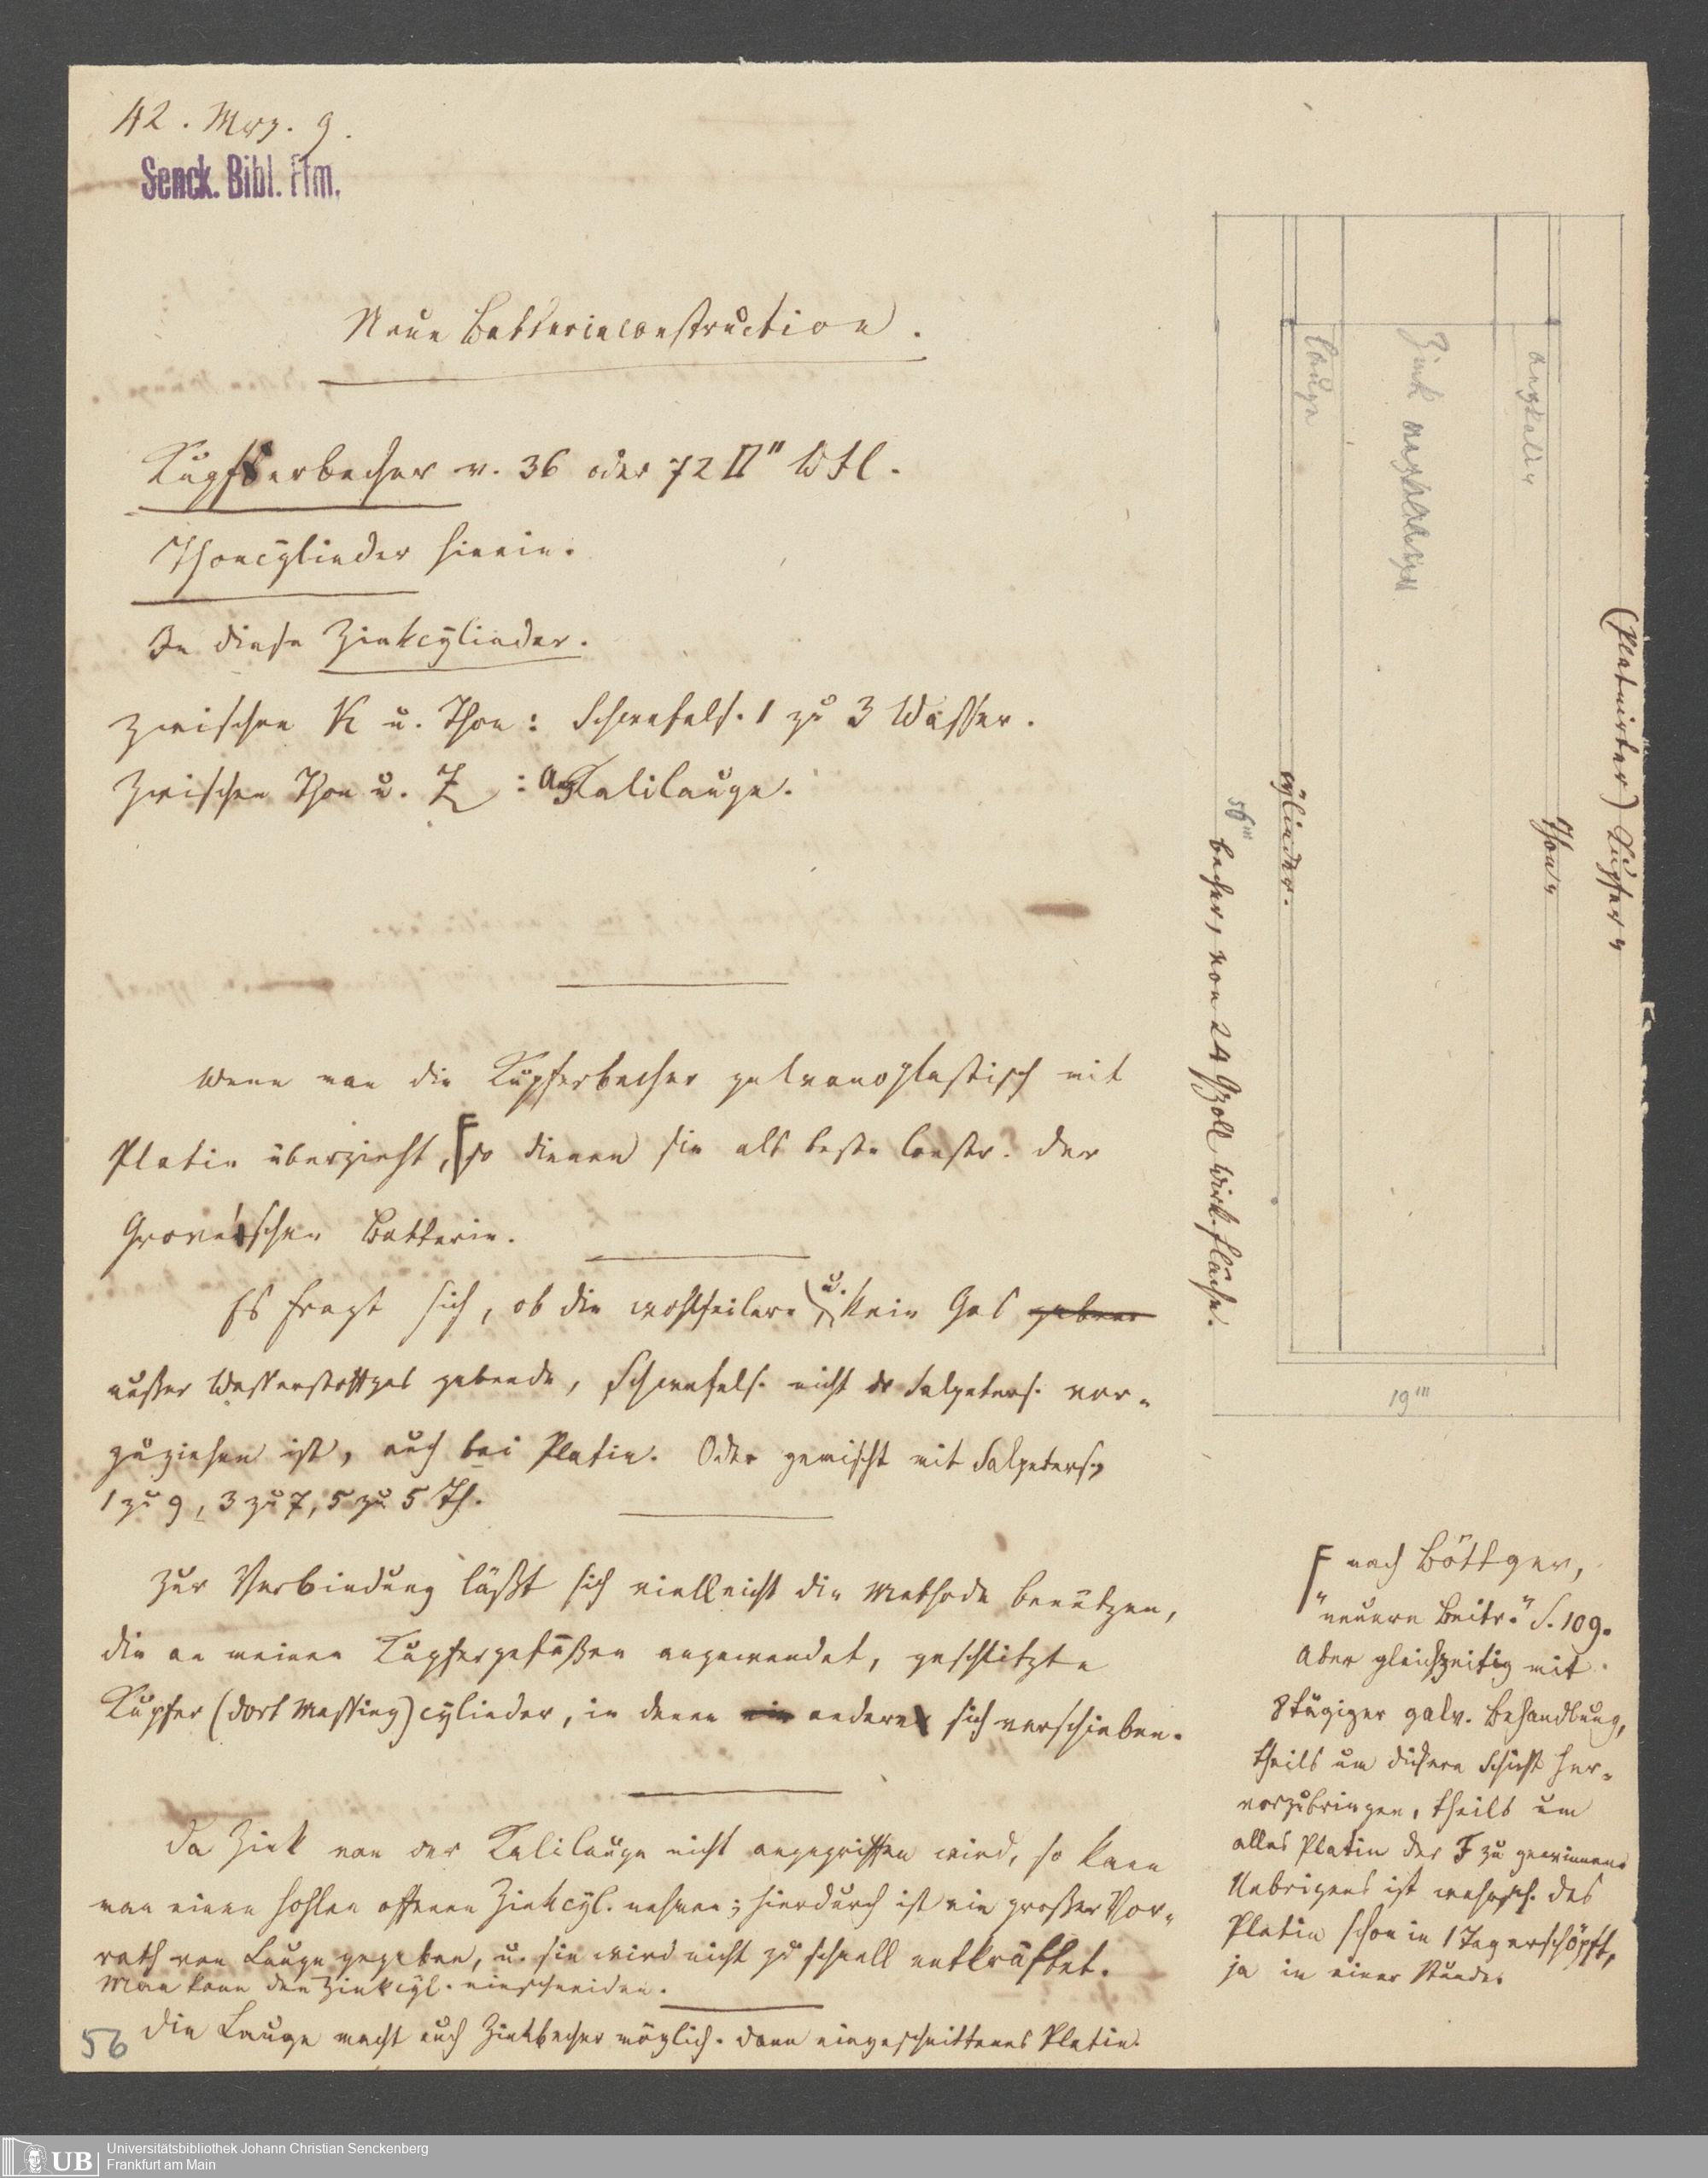 42. Mrz. 9.
Senck. Bibl. Ffm.
Neue Batterieconstruction.
Kupferbecher v. 36 oder 72 □" Wfl.
Thoncylinder hinein.
In diese Zinkcylinder.
Zwischen K u. Thon: Schwefels. 1 zu 3 Wasser.
Zwischen Thon u. Z: Aetzkalilauge.
Wenn man die Kupferbecher galvanoplastisch mit
Platin überzieht, so dienen sie als beste Constr. der
Grove'schen Batterie.
Es fragt sich, ob die wohlfeilere u. kein Gas geben
ausser Wasserstoffgas gebende, Schwefels. nicht der Salpeters. vor-
zuziehen ist, auch bei Platin. Oder gemischt mit Salpeters.
1 zu 9, 3 zu 7, 5 zu 5 Th.
Zur Verbindung läßt sich vielleicht die Methode benützen,
die an meinen Kupfergefäßen angewendet, geschlitzte
Kupfer (dort Messing) cylinder, in denen ein andere sich verschieben.
Da Zink von der Kalilauge nicht angegriffen wird, so kann
man einen hohlen offenen Zinkcyl. nehmen; hierdurch ist ein großer Vor-
rath von Lauge gegeben, u. sie wird nicht zu schnell entkräftet.
Man kann den Zinkcyl. einschneiden.
Die Lauge macht auch Zinkbecher möglich. Dann eingeschnittenes Platin.
56
Lauge
Zink
(Platinirter) Kupfer-
Thon-
cylinder.
becher, von 24 Qzoll wirk. Fläche.
19'''
nach Böttger,
"neuere Beitr." S. 109.
Aber gleichzeitig mit
8tägiger galv. Behandlung,
theils um dickere Schicht her-
vorzubringen, theils um
alles Platin der F zu gewinnen.
Uebrigens ist wahrsch. das
Platin schon in 1 Tag erschöpft,
ja in einer Stunde.
UB
Universitätsbibliothek Johann Christian Senckenberg
Frankfurt am Main